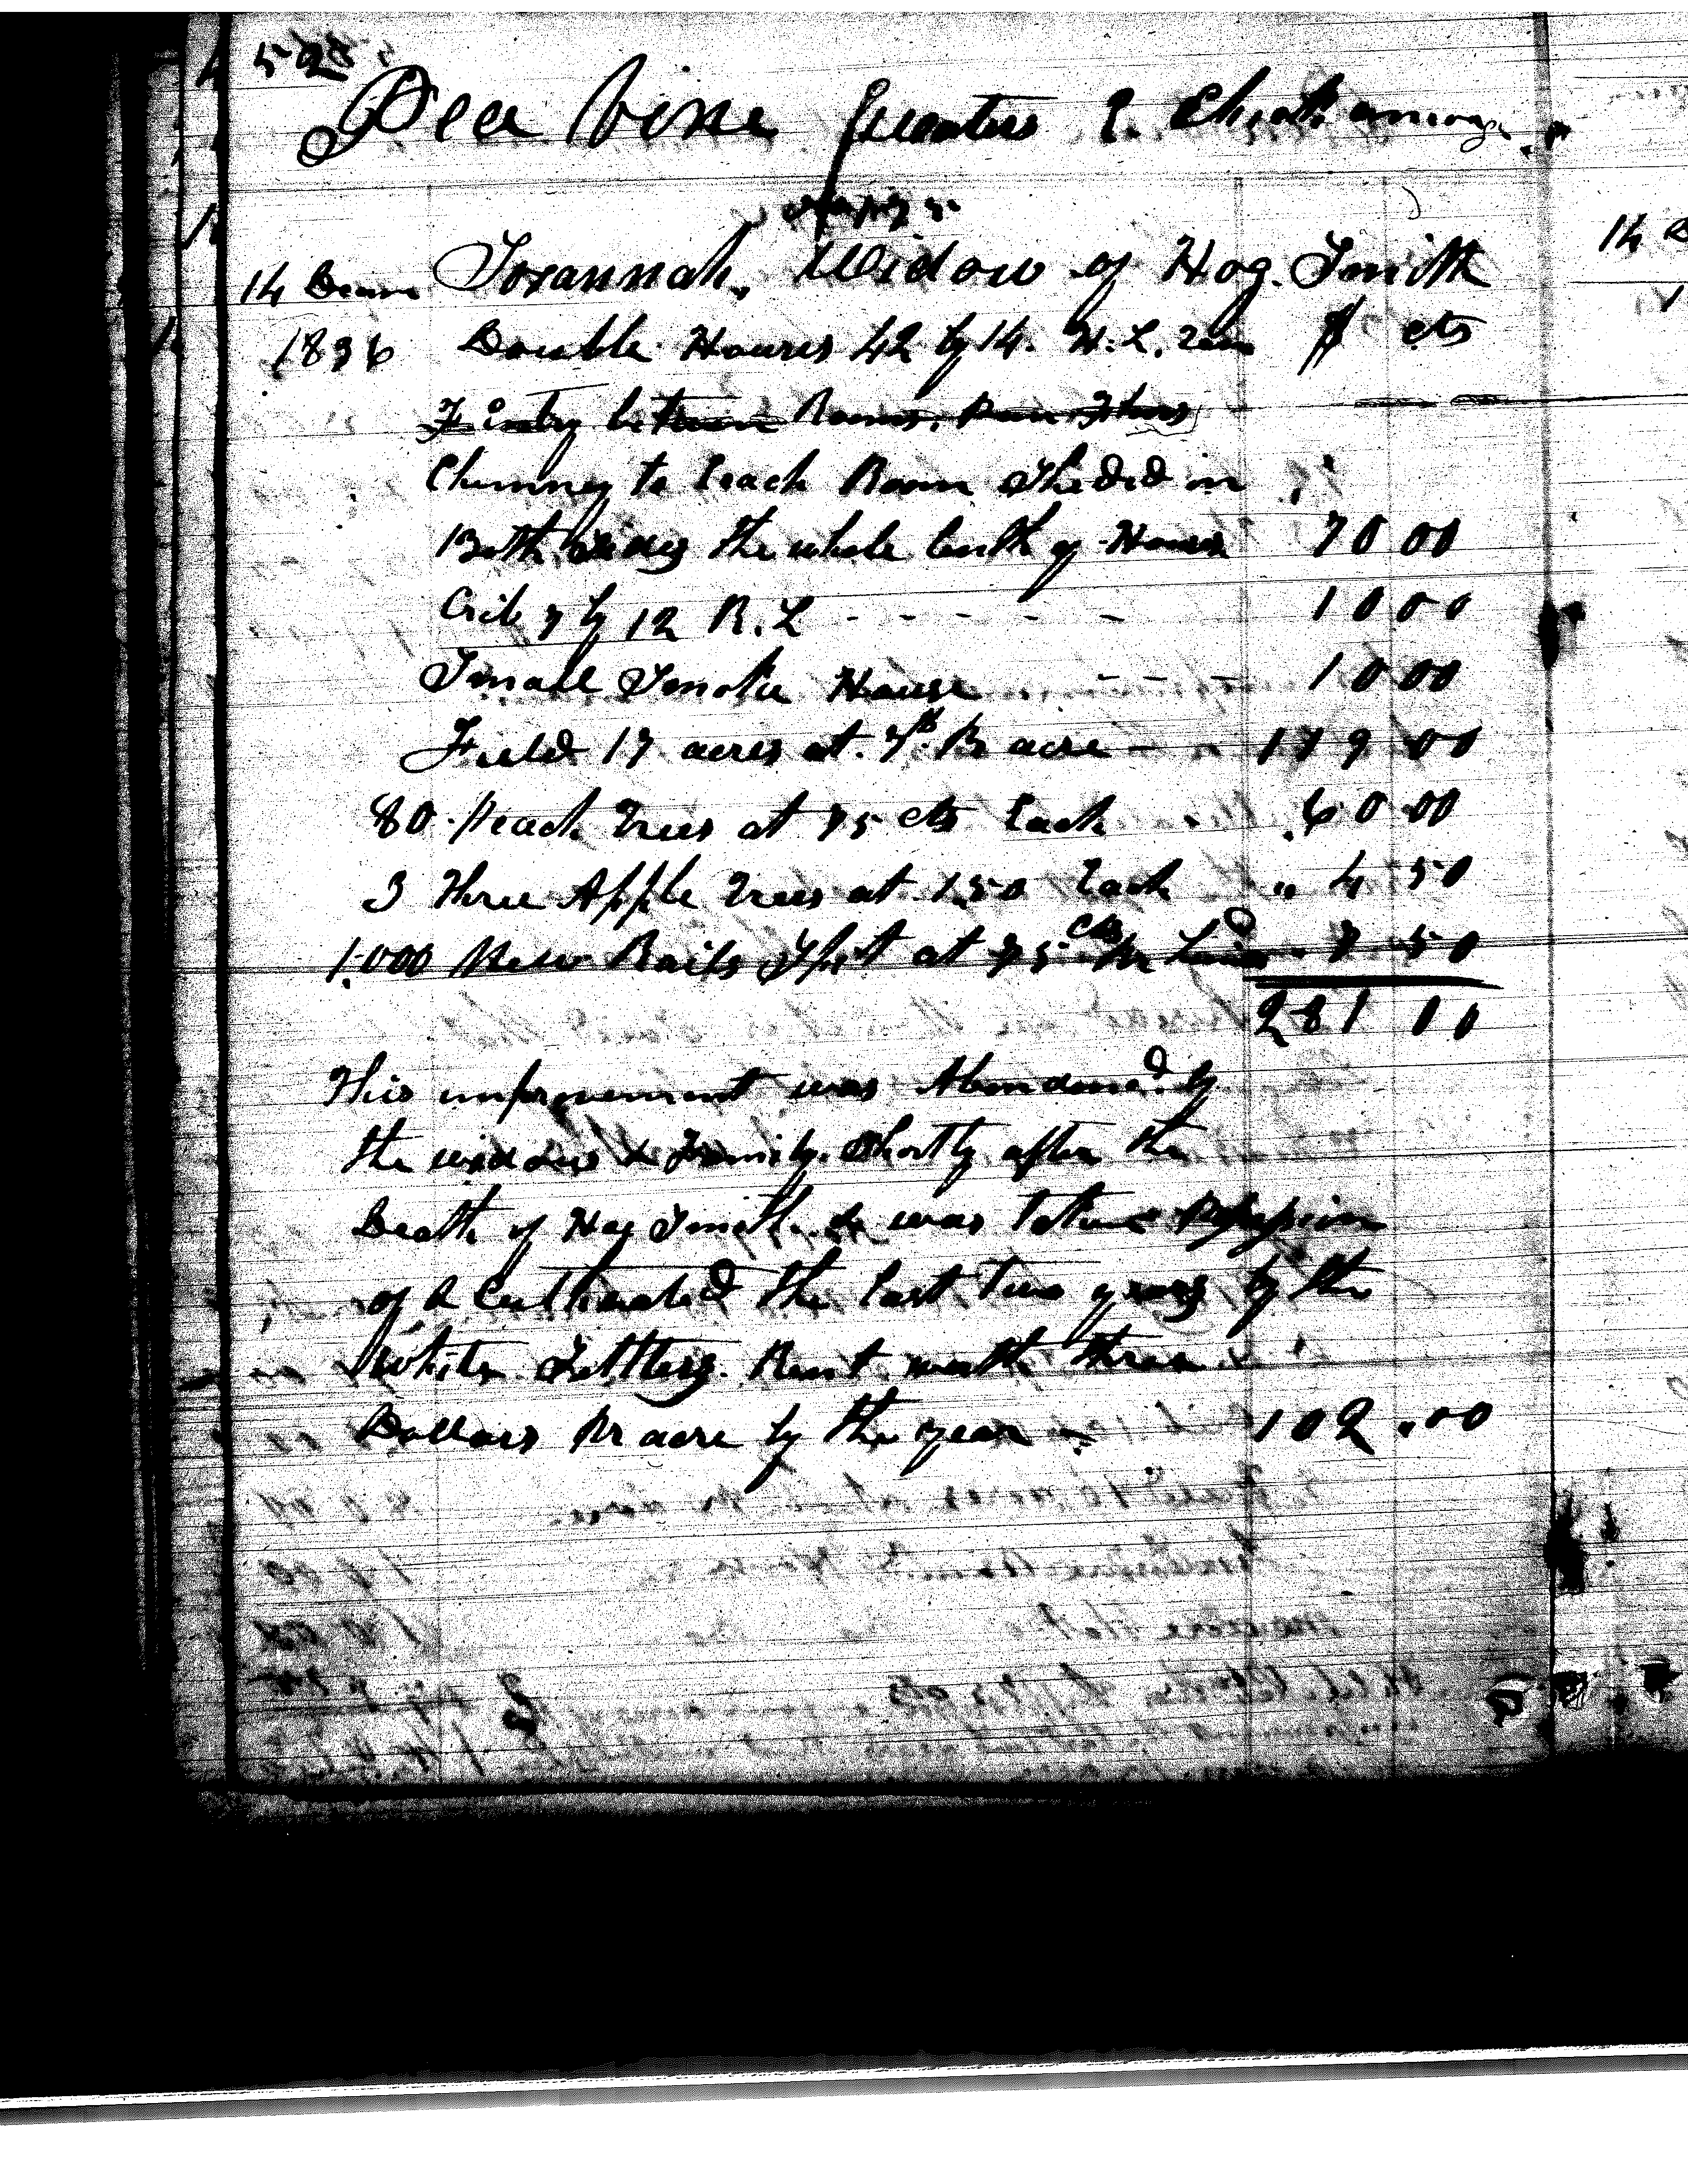 528
Pea Vine
Susannah, Widow of Hog. Smith
14 Decem
1836 Double Houses 42 by 14. H. L. $ cts
Entry between Rooms.
Chimney to Each Room Shedd in
Both sides the whole lenth of House 70 00
Crib 7 by 12 R. L - - - - - 10 00
Small Smoke House - - - 10 00
Field 17 acres at 7$ Pr acre - - 119 00
80 Peach Trees at 75 cts Each " 60 00
3 Three Apple Trees at 1.50 Each " 4 50
1.000 New Rails Split at 75 cts Pr 7 50
281 00
This improvement was Abandoned by
the widow & Family. Shortly after the
Death of Hog Smith. & was taken Possession
of & Cultivated the last two years by the
White Settlers. Rent worth three
Dollars Pr acre by the year 102.00